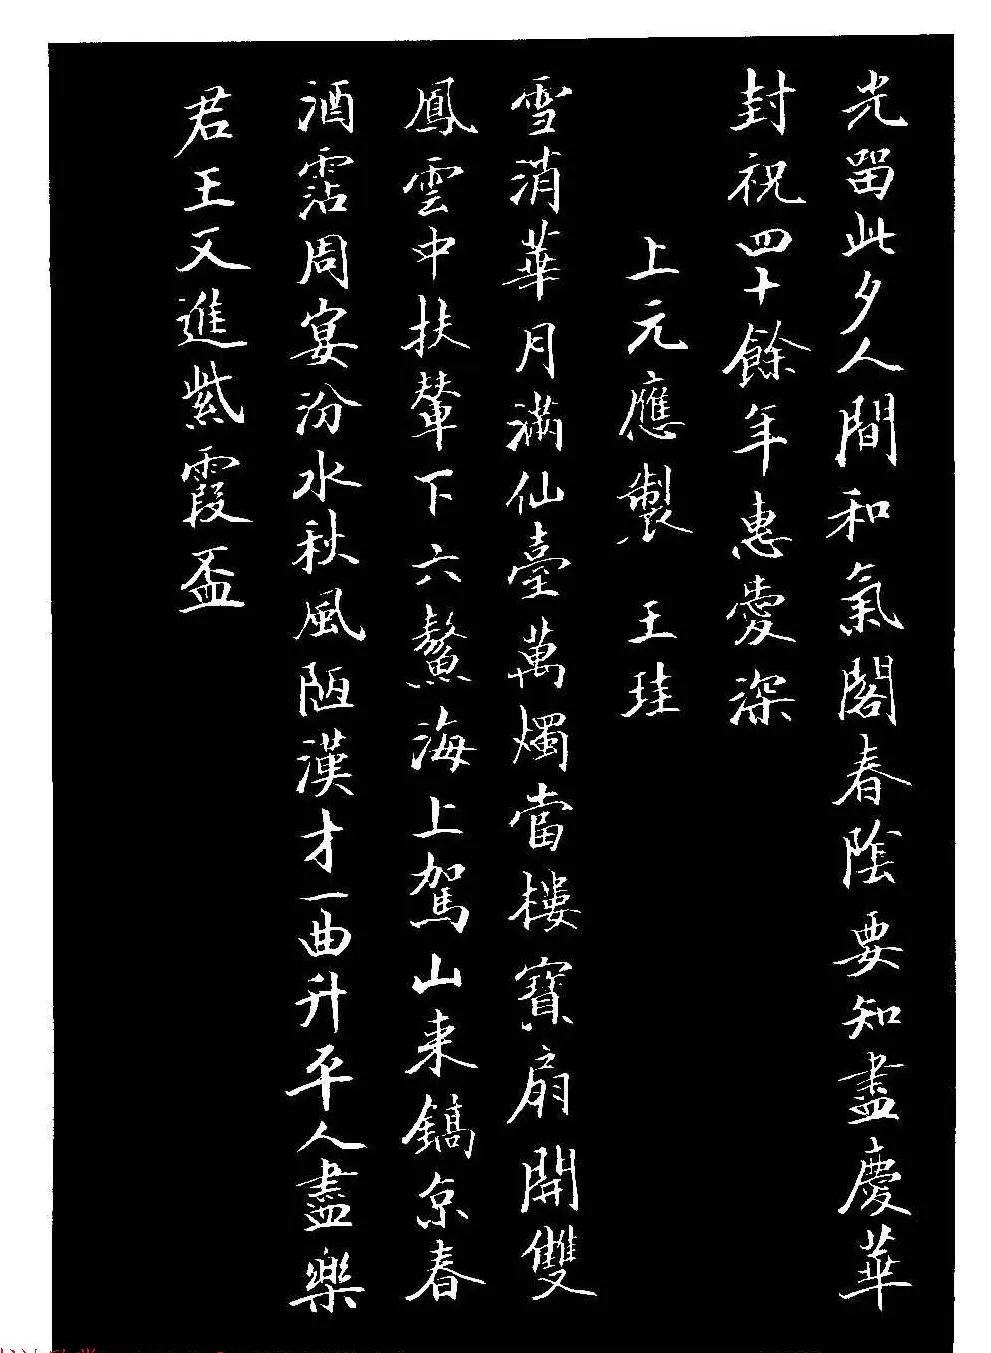 光留此夕人間和氣閣春陰要知盡慶華
封祝四十餘年惠愛深
上元應製 王珪
雪消華月滿仙臺萬燭當樓寶扇開雙
鳳雲中扶輦下六鰲海上駕山来鎬京春
酒霑周宴汾水秋風陋漢才一曲升平人盡樂
君王又進紫霞盃